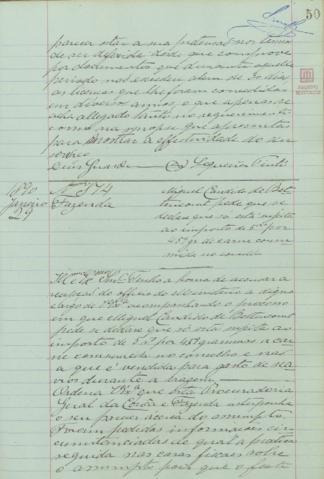 50
parecer estar a sua pretensão nos termos
de ser deferida desde que comprove
por documentos que durante aquelle
periodo não excedeu alem de 30 dias
as licenças que lhe foram concedidas
em diversos annos, e que apenas se
acha allegado tanto no requerimento
como na
para mostrar a effectividade do seu
serviço
Deus Guarde
1890
Janeiro
29
Nº 874
Fazenda
Miguel Candido de Bet-
tencourt pede que se
declare que só está sujeita
ao imposto de 5 rs por
459 gr de carne consu-
mida no concelho
Tenho a honra de accusar a
recepção do officio do
cargo de V. Exª acompanhando o processo
em que Miguel Candido de Bettencourt
pede se declare que só está sujeita ao
imposto de 5 rs por 459 grammas a car-
ne consumida no concelho e não
a que é vendida para gasto de na-
vios durante a viagem
Ordena V. Exª que esta Procuradoria
Geral da Corôa e Fazenda interponha
o seu parecer acerca do assumpto
Foram pedidas informações cir-
cumstanciadas de qual a pratica
seguida nas casas fiscaes sobre
o assumpto para que o